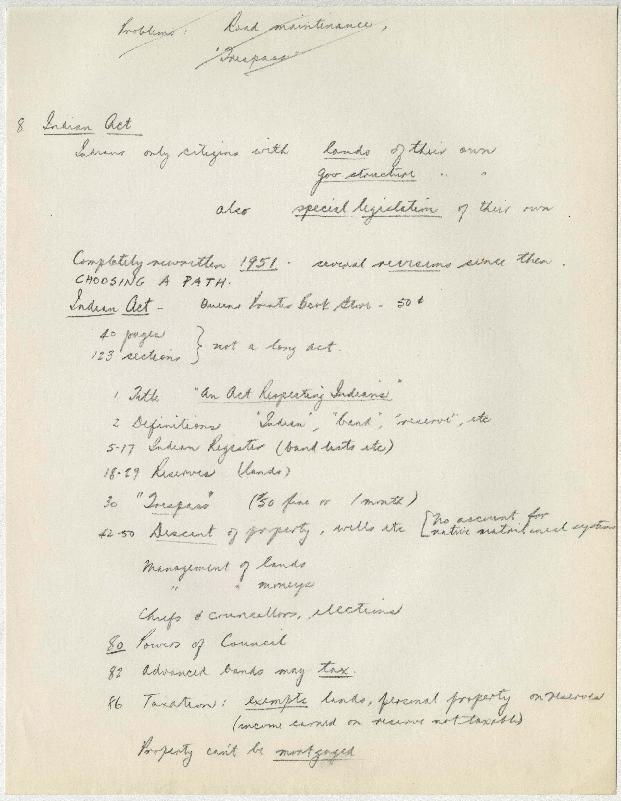 Problems: Road maintenance,
"Trespass"
8 Indian Act
Indians only citizens with lands of their own
gov structure " "
also special legislation of their own
Completely rewritten 1951 - several revisions since then.
CHOOSING A PATH.
Indian Act - Queens Printer Book Store - 50¢
40 pages
123 sections } not a long act.
1 Title "An Act Respecting Indians"
2 Definitions "Indian", "band", "reserve", etc
5-17 Indian Register (band lists etc)
18-29 Reserves (lands)
30 "Trespass" ($50 fine or 1 month)
42-50 Descent of property, wills etc [No account for
native matrilineal systems
Management of lands
" " moneys
Chiefs & councillors, elections
80 Powers of Council
82 Advanced bands may tax.
86 Taxation: exempts lands, personal property on reserves
(income earned on reserve not taxable)
Property can't be mortgaged